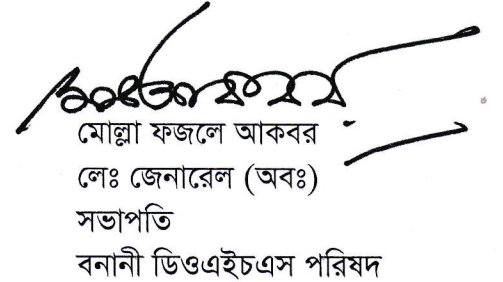 মোল্লা ফজলে আকবর
লেঃ জেনারেল (অবঃ)
সভাপতি
বনানী ডিওএইচএস পরিষদ